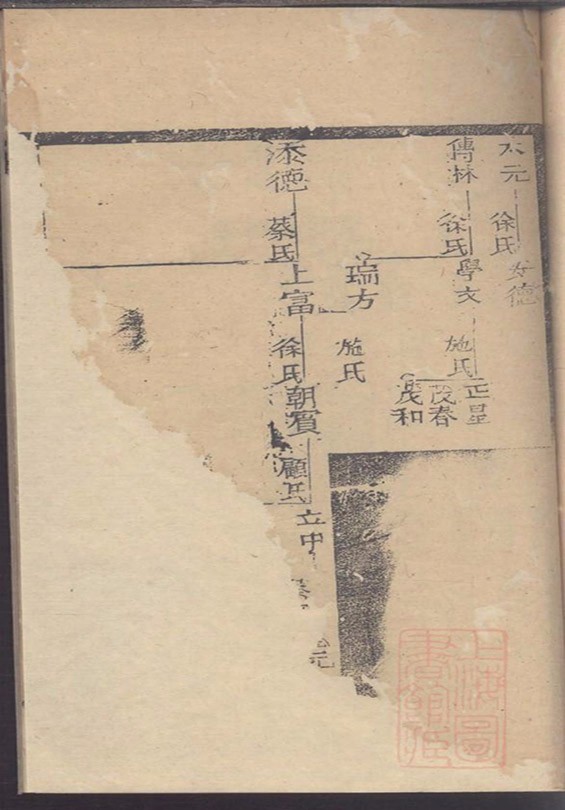 元
徐氏
德
傳林
徐氏
學文
施氏
正星
茂春
茂和
瑞方
施氏
添德
蔡氏
上富
徐氏
朝賓
顧氏
立中
元
上海圖
書館藏